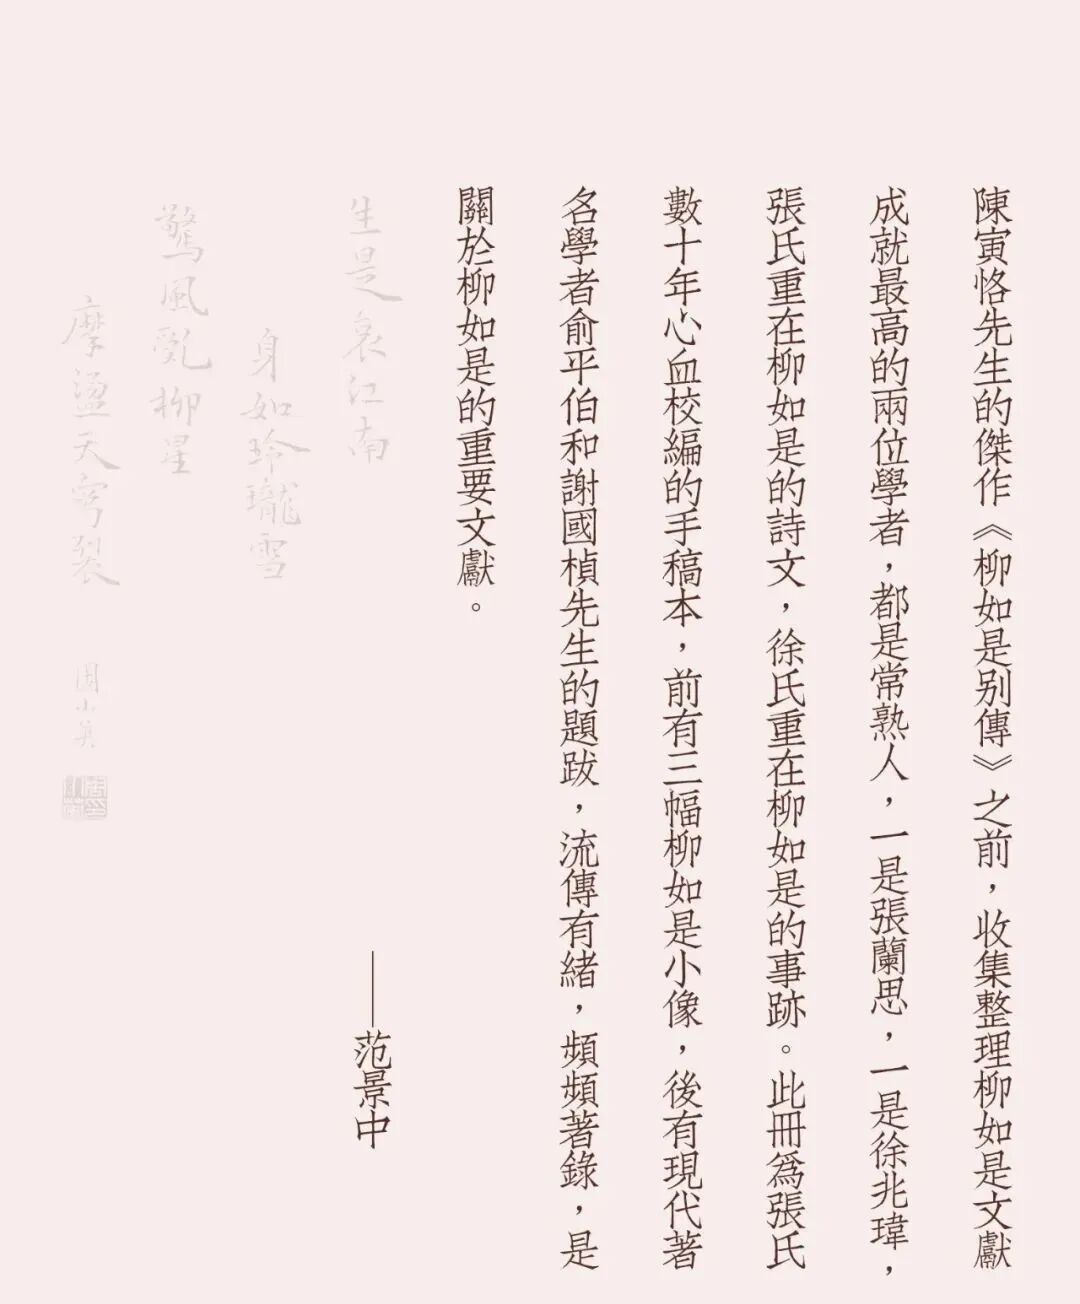 陳寅恪先生的傑作《柳如是别傳》之前，收集整理柳如是文獻
成就最高的兩位學者，都是常熟人，一是張蘭思，一是徐兆瑋，
張氏重在柳如是的詩文，徐氏重在柳如是的事跡。此冊爲張氏
數十年心血校編的手稿本，前有三幅柳如是小像，後有現代著
名學者俞平伯和謝國楨先生的題跋，流傳有緒，頻頻著錄，是
關於柳如是的重要文獻。
——范景中
生是哀江南
身如玲瓏雪
驚風亂柳星
摩盪天穹裂
周小英